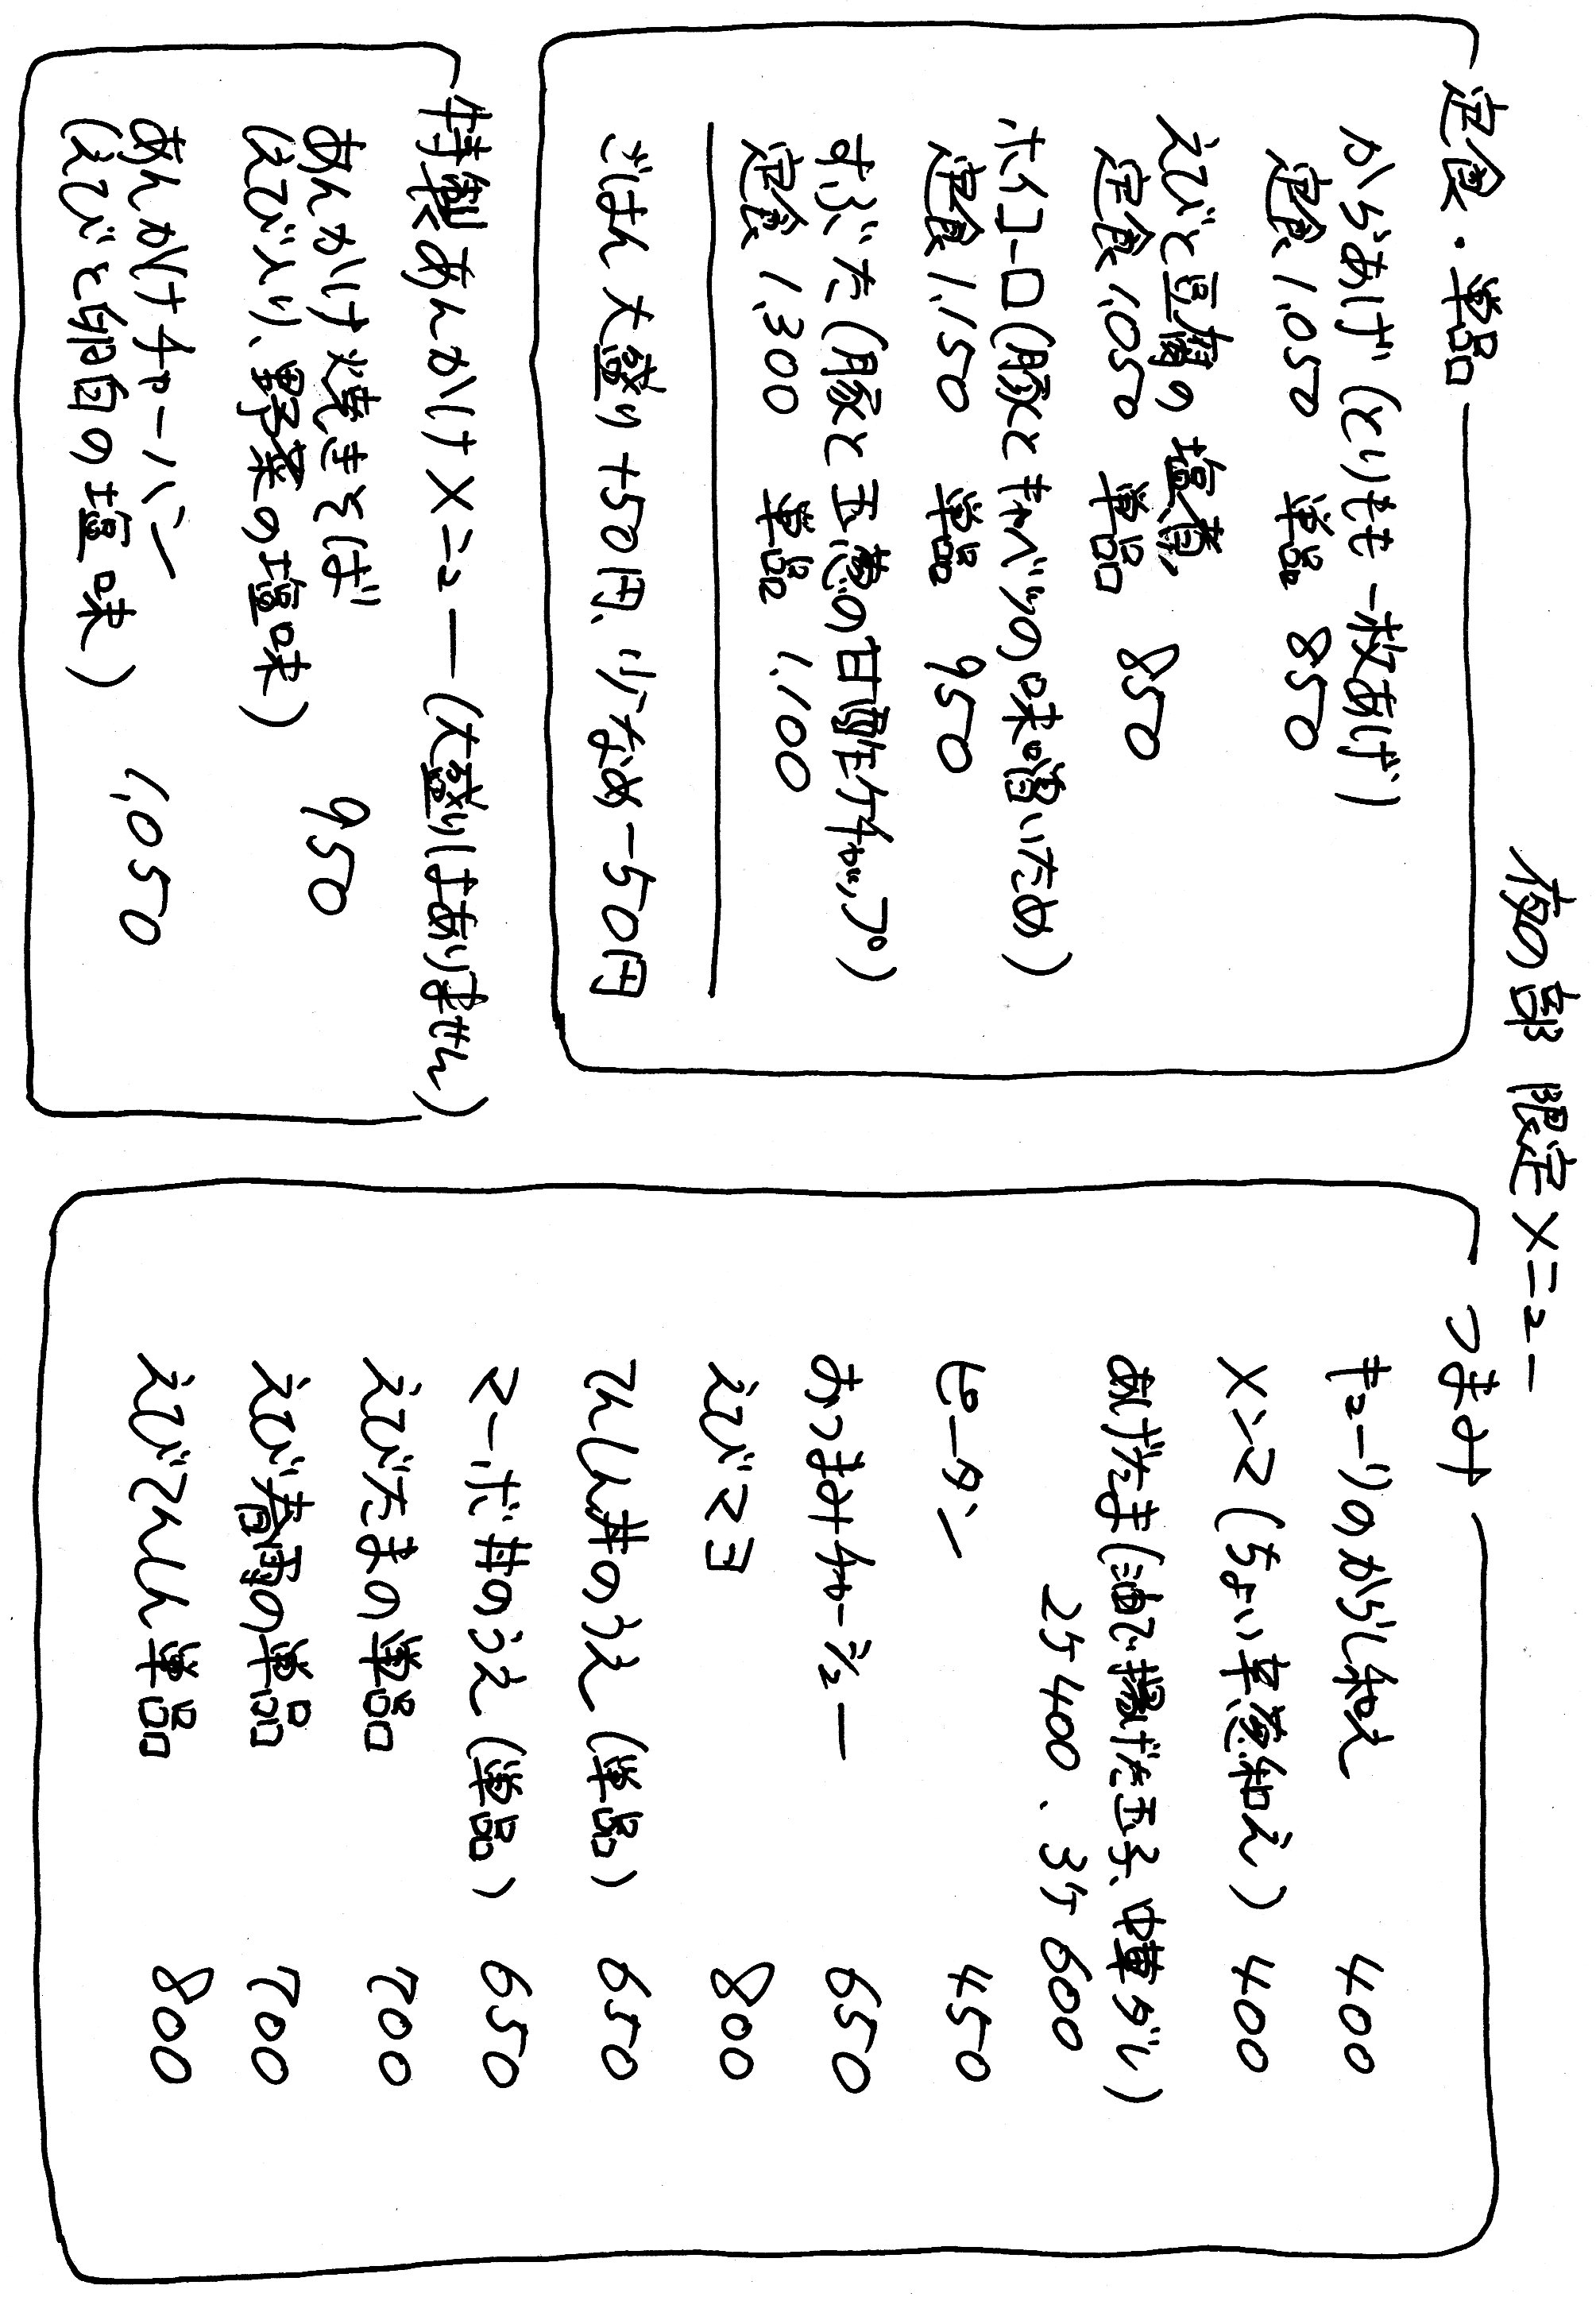 夜の部 限定メニュー
定食・単品
からあげ(とりもも一枚あげ)
定食 1,050 単品 850
えびと豆腐の塩煮
定食 1,050 単品 850
ホイコーロ(豚とキャベツの味噌いため)
定食 1,150 単品 950
すぶた(豚と玉葱の甘酢ケチャップ)
定食 1,300 単品 1,100
ごはん 大盛り+50円、少なめ-50円
特製あんかけメニュー(大盛りはありません)
あんかけ焼きそば
(えび入り、野菜の塩味) 950
あんかけチャーハン
(えびと卵白の塩味) 1,050
つまみ
キューリのからし和え 400
メンマ(ちょい辛葱和え) 400
あげたま(油で揚げた玉子、中華ダレ)
2ケ400、3ケ600
ピータン 450
おつまみチャーシュー 650
えびマヨ 800
てんしん丼のうえ(単品) 650
マーボ丼のうえ(単品) 650
えびたまの単品 700
えび春雨の単品 700
えびてんしん単品 800